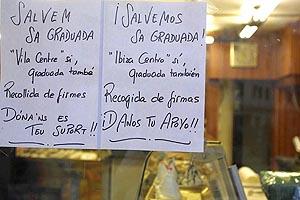 SALVEM
SA GRADUADA
"Vila Centre" sí,
graduada també
Recollida de firmes
DÓNA'NS ES
TEU SUPORT!!
¡SALVEMOS
SA GRADUADA!
"Ibiza Centro" sí,
graduada también
Recogida de firmas
¡DANOS TU APOYO!!